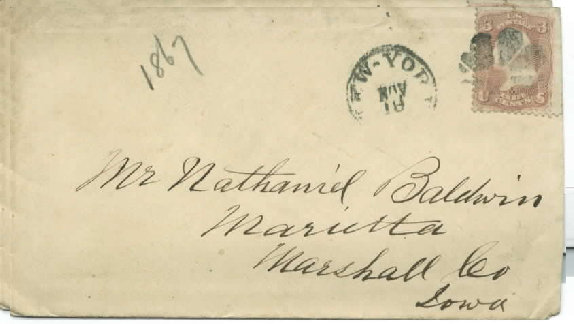 1867
NEW-YORK
Mr Nathaniel Baldwin
Marietta
Marshall Co
Iowa